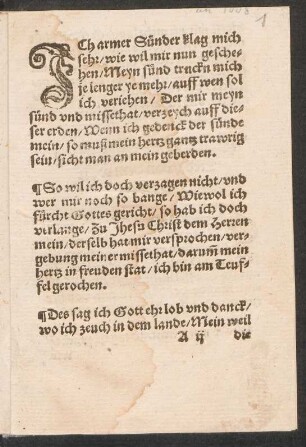 ICh armer Sünder klag mich
sehr/ wie wil mir nun gesche-
hen/ Meyn sünd truckn mich
je lenger ye mehr/ auff wen sol
ich verjehen/ Der mir meyn
sünd vnd missethat/ verzeych auff die-
ser erden/ Wenn ich gedenck der sünde
mein/ so muß mein hertz gantz trawrig
sein/ sicht man an mein geberden.
¶ So wil ich doch verzagen nicht/ vnd
wer mir noch so bange/ Wiewol ich
fürcht Gottes gericht/ so hab ich doch
verlange/ Zu Jhesu Christ dem Herren
mein/ derselb hat mir versprochen/ ver-
gebung meiner missethat/ darum̃ mein
hertz in freuden stat/ ich bin am Teuf-
fel gerochen.
¶ Des sag ich Gott ehr lob vnd danck/
wo ich zeuch in dem lande/ Mein weil
A ij die
1